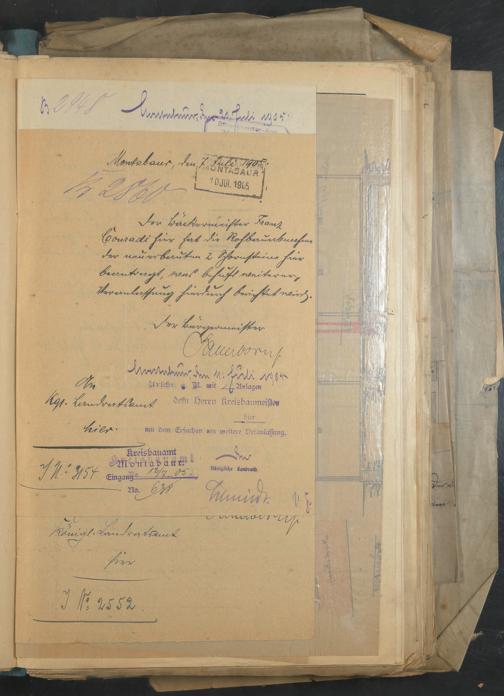 B 2948 Montabaur, den 20. Juli 1905.
Montabaur, den 7. Juli 1905.
MONTABAUR
10 JUL 1905
Der Bäckermeister Franz
Conradi hier hat die Rohbauabnahme
der neuerbauten 2 Schornsteine hier
beantragt, was behufs weiterer
Veranlassung hierdurch berichtet wird.
Der Bürgermeister
Sauerborn
Montabaur, den 11. Juli 1905
Urschr. g. R. mit Anlagen
An
Kgl. Landratsamt
hier.
dem Herrn Kreisbaumeister
hier
mit dem Ersuchen um weitere Veranlassung.
Kreisbauamt
Montabaur
Eingang
No.
der
Königliche Landrath
J. No. 3154
Schmidt
Sauerborn
Königl. Landratsamt
hier
J. No. 2552.